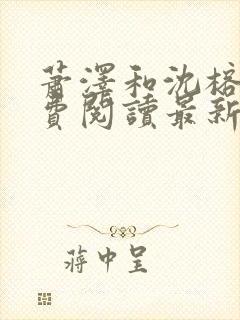 蕭澤和沈榕
費閱讀最新
蔣中呈